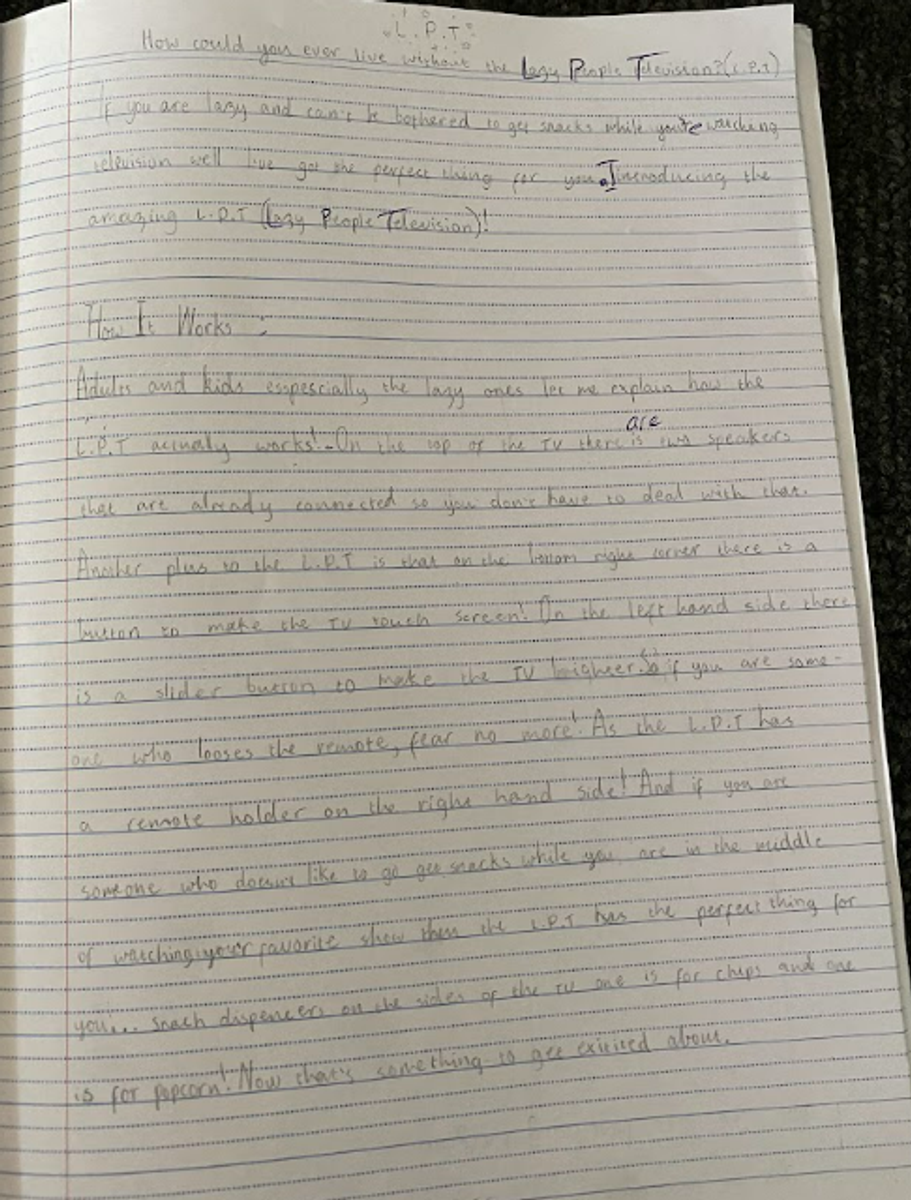 L.P.T
How could you ever live without the Lazy People Television?(L.P.T)
If you are lazy and can't be bothered to get snacks while you're watching
television well I've got the perfect thing for you. Introducing the
amazing L.P.T (Lazy People Television)!
How It Works :
Adults and kids esspescially the lazy ones let me explain how the
L.P.T actually works! On the top of the TV there is are two speakers
that are already connected so you don't have to deal with that.
Another plus to the L.P.T is that on the bottom right corner there is a
button to make the TV touch screen! On the left hand side there
is a slider button to make the TV brighter. So if you are some-
one who looses the remote, fear no more! As the L.P.T has
a remote holder on the right hand side! And if you are
someone who doesn't like to go get snacks while you are in the middle
of watching your favorite show then the L.P.T has the perfect thing for
you... Snack dispencers on the sides of the TV one is for chips and one
is for popcorn! Now that's something to get exicited about.